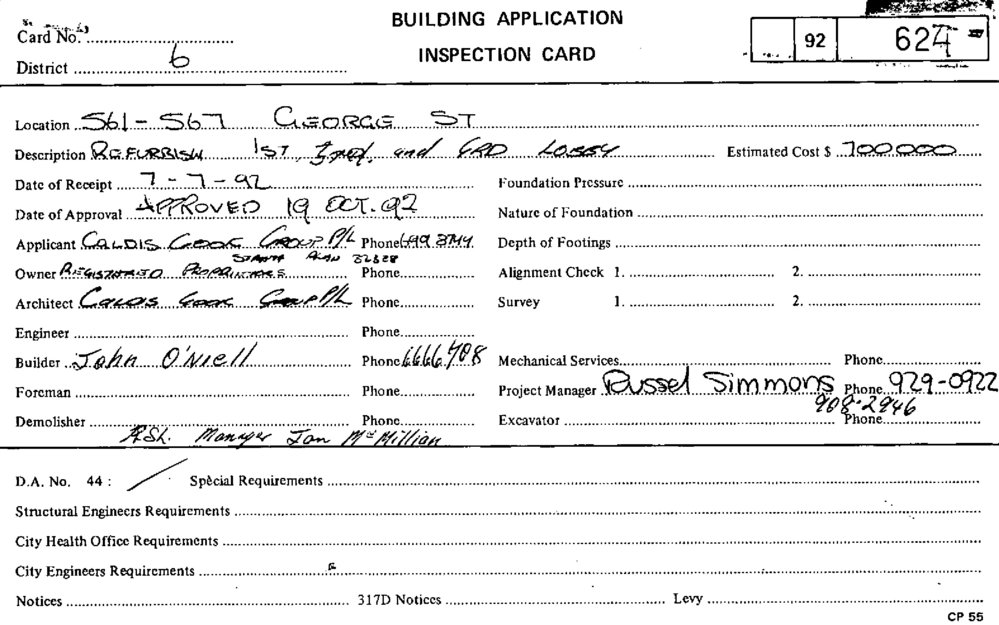 BUILDING APPLICATION
INSPECTION CARD
Card No.
District 6
92 624
Location 561-567 GEORGE ST
Description REFURBISH 1ST, and GRD LOBBY Estimated Cost $ 700000
Date of Receipt 7-7-92 Foundation Pressure
Date of Approval APPROVED 19 OCT. 92 Nature of Foundation
Applicant CALDIS COOK GROUP P/L Phone Depth of Footings
Owner REGISTERED PROPRIETORS Phone Alignment Check 1. 2.
Architect CALDIS COOK GROUP P/L Phone Survey 1. 2.
Engineer Phone
Builder John O'Niell Phone 6666708 Mechanical Services Phone
Foreman Phone Project Manager Russel Simmons Phone 929-0922
908-2946
Demolisher Phone Excavator Phone
Manager Ian McMillian
D.A. No. 44 : / Special Requirements
Structural Engineers Requirements
City Health Office Requirements
City Engineers Requirements
Notices 317D Notices Levy
CP 55